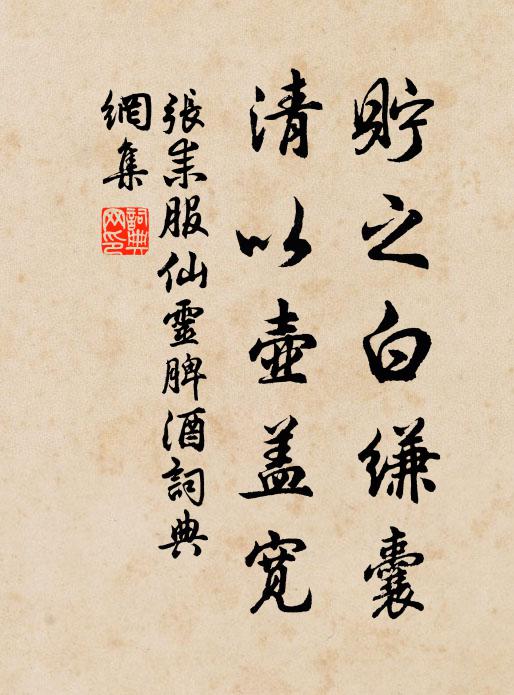 貯之白縑囊
清以壺盖寬
張耒服仙靈脾酒詞典
網集
詞典網印